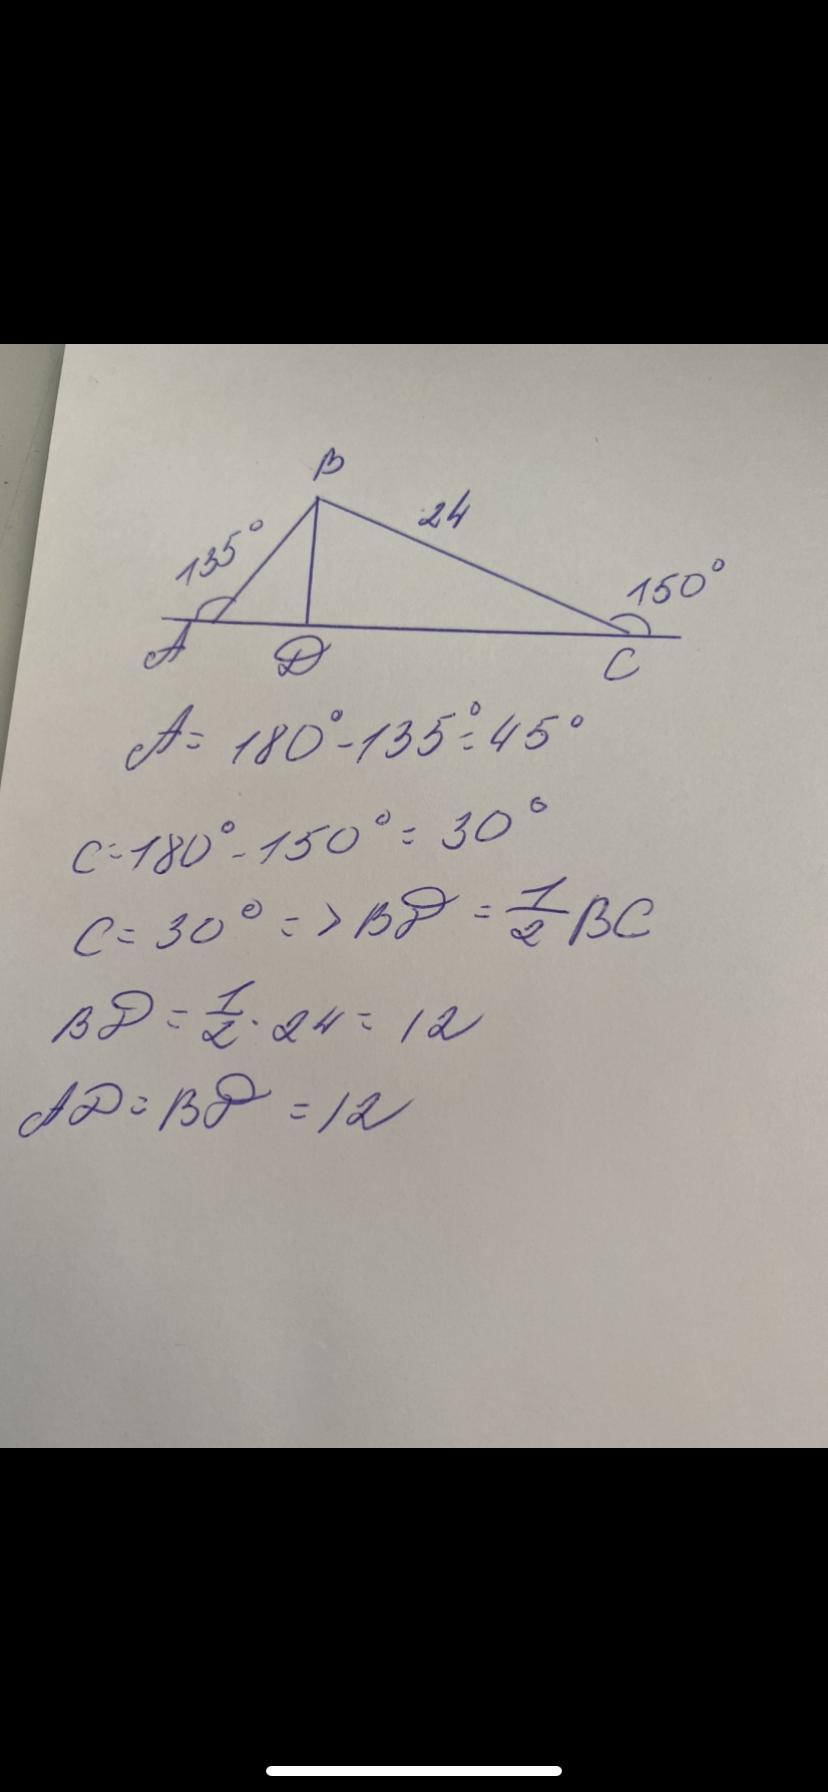 B
24
135°
150°
A
D
C
A = 180° - 135° = 45°
C = 180° - 150° = 30°
C = 30° => BD = 1/2 BC
BD = 1/2 · 24 = 12
AD = BD = 12